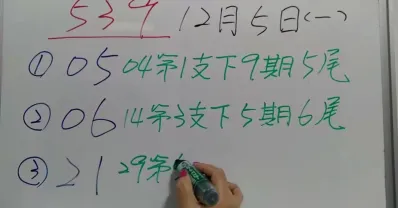 539 12月5日(一)
① 05 04第1支下9期5尾
② 06 14第3支下5期6尾
③ 21 29第